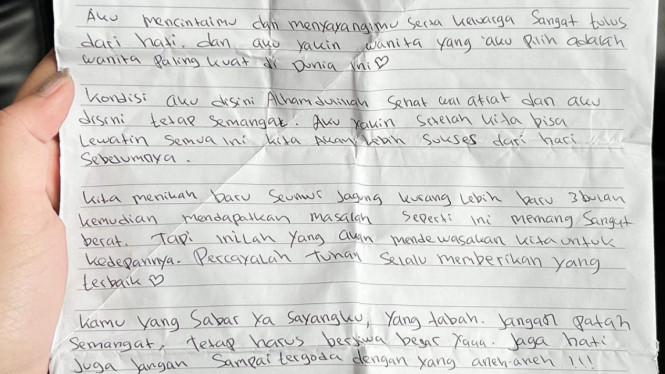 Aku mencintaimu dan menyayangimu serta kewarga sangat tulus
dari hati. dan aku yakin wanita yang aku pilih adalah
wanita paling kuat di Dunia ini♡
Kondisi aku disini Alhamdulillah sehat wal afiat dan aku
disini tetap semangat. Aku yakin setelah kita bisa
Lewatin semua ini kita akan lebih sukses dari hari
sebelumnya.
Kita menikah baru seumur Jagung kurang lebih baru 3 bulan
kemudian mendapatkan masalah seperti ini memang sangat
berat. Tapi inilah yang akan mendewasakan kita untuk
kedepannya. Percayalah Tuhan selalu memberikan yang
terbaik ♡
Kamu yang sabar ya sayangku, yang tabah. Jangan patah
semangat, tetap harus berjiwa besar yaaa. Jaga hati
Juga Jangan sampai tergoda dengan yang aneh-aneh !!!